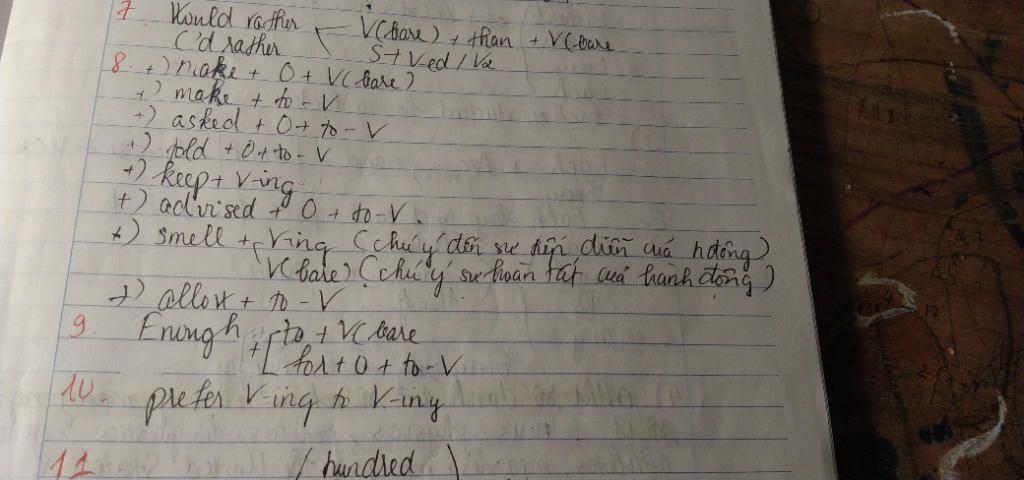 7 Would rather V(bare) + than + V(bare
('d rather S + Ved / V2
8. +) make + O + V(bare)
+) make + to - V
+) asked + O + to - V
+) told + O + to - V
+) keep + V-ing
+) advised + O + to - V.
+) smell + Ving (chú ý đến sự tiếp diễn của h động)
V(bare) (chú ý sự hoàn tất của hành động)
+) allow + to - V
9. Enough + to + V(bare
for + O + to - V
10. prefer V-ing to V-ing
11 (hundred)